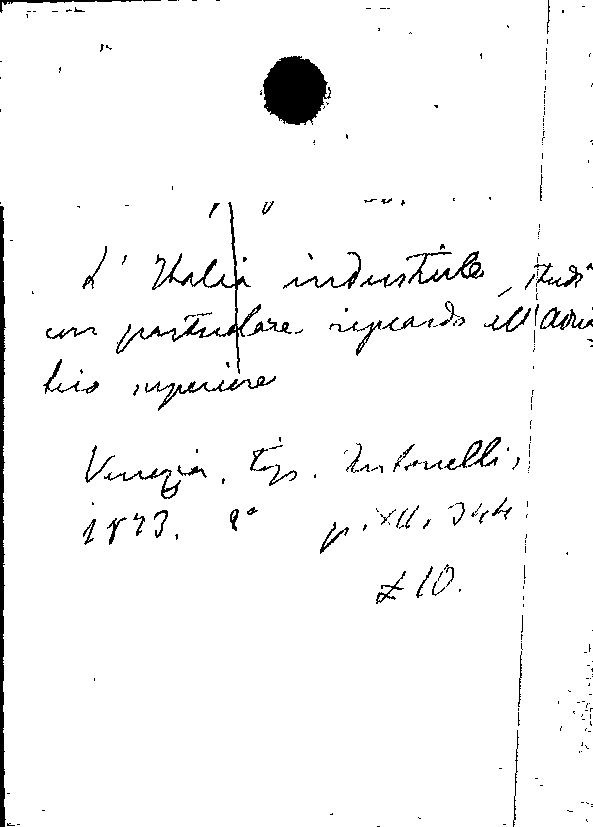 L'Italia industriale, studi
con particolare riguardo all'Adria
tico superiore
Venezia, tip. Antonelli,
1873. 8° p. XII, 344
£ 10.